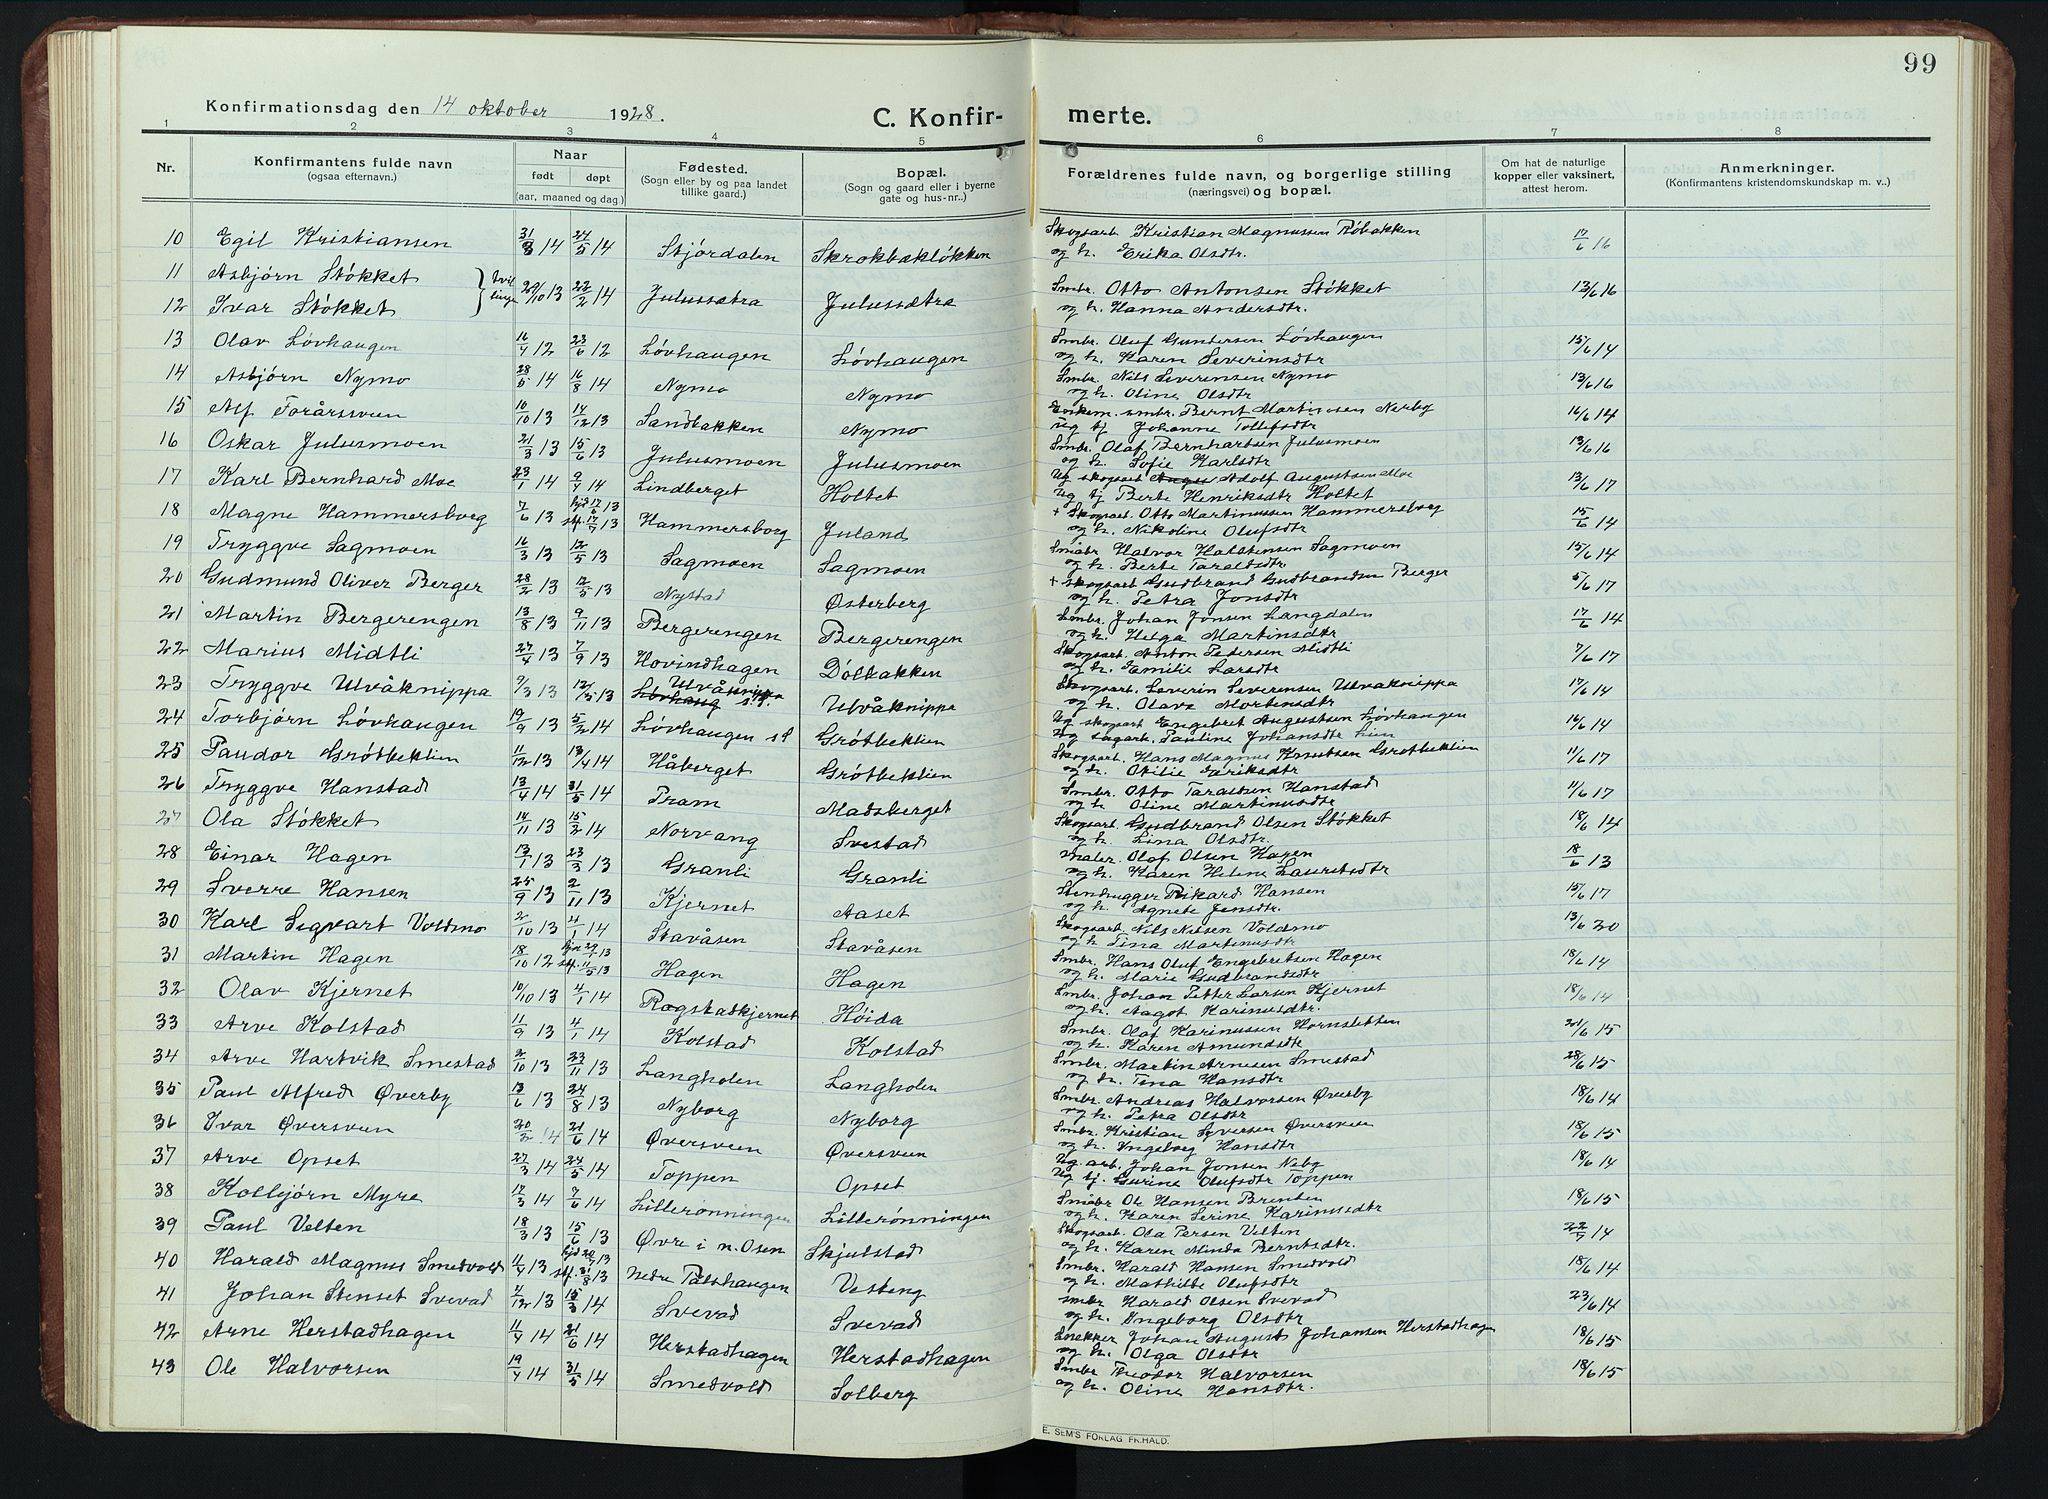 99
Konfirmationsdag den 14 oktober 1928.
C. Konfirmerte.
1 2 3 4 5 6 7 8
Nr. | Konfirmantens fulde navn (ogsaa efternavn.) | Naar født døpt (aar, maaned og dag.) | Fødested. (Sogn eller by og paa landet tillike gaard.) | Bopæl. (Sogn og gaard eller i byerne gate og hus-nr..) | Forældrenes fulde navn, og borgerlige stilling (næringsvei) og bopæl. | Om hat de naturlige kopper eller vaksinert, attest herom. | Anmerkninger. (Konfirmantens kristendomskundskap m. v..)
10 Egil Kristiansen 31/3 14 24/5 14 Stjørdalen Skrokbækløkken Skogsarb. Kristian Magnussen Røbakken 17/6 16
og h. Erika Olsdtr.
11 Asbjørn Støkket } tvil
12 Ivar Støkket } linger 29/10 13 22/2 14 Julussætra Julussætra Smbr. Otto Antonsen Støkket 13/6 16
og h. Hanna Andersdtr.
13 Olav Løvhaugen 16/4 12 23/6 12 Løvhaugen Løvhaugen Smbr. Oluf Gundersen Løvhaugen 15/6 14
og h. Karen Severinsdtr
14 Asbjørn Nymo 28/5 14 16/8 14 Nymo Nymo Smbr. Nils Severinsen Nymo 13/6 16
og h. Oline Olsdtr
15 Alf Forårsveen 10/10 13 14/12 13 Sandbakken Nymo Enkem. smbr. Bernt Martinsen Nerby 16/6 14
ug tj Johanne Tollefsdtr
16 Oskar Julusmoen 21/3 13 15/6 13 Julusmoen Julusmoen Smbr. Olaf Bernhartsen Julusmoen 13/6 16
og h. Sofie Karlsdtr
17 Karl Bernhard Moe 23/1 14 9/4 14 Lindberget Holtet Ug skogsarb Adolf Augustsen Moe 13/6 17
Ug tj Berte Henriksdtr Holtet
18 Magne Hammersborg 7/6 13 hjd 17/6 13 stf. 17/7 13 Hammersborg Juland + Skogsarb. Otto Martinussen Hammersborg 15/6 14
og h. Nikoline Olufsdtr
19 Tryggve Sagmoen 16/3 13 12/5 13 Sagmoen Sagmoen Småbr Halvor Halstensen Sagmoen 15/6 14
og h. Berte Taraldsdtr
20 Gudmund Oliver Berger 28/2 13 12/5 13 Nystad Østerberg + skogsarb Gudbrand Gudbrandsen Berger 5/6 17
og h. Petra Jonsdtr
21 Martin Bergerengen 13/8 13 9/11 13 Bergerengen Bergerengen Smbr. Johan Jonsen Langdalen 17/6 14
og h. Helga Martinsdtr
22 Marius Midtli 27/4 13 7/9 13 Hovindhagen Dølbakken Skogsarb. Anton Pedersen Midtli 7/6 17
og h. Emilie Larsdtr
23 Tryggve Ulvåknippa 9/3 13 12/5 13 Ulvåknippa Ulvåknippa Skogsarb. Severin Severinsen Ulvåknippa 17/6 14
og h. Olava Mortensdtr
24 Torbjørn Løvhaugen 19/9 13 5/2 14 Løvhaugen Grøtbeklien Ug skogsarb Engebret Augustsen Løvhaugen 16/6 14
Ug Pauline Johansdtr
25 Paudor Grøtbeklien 11/12 13 13/4 14 Håberget Grøtbeklien Skogsarb. Hans Magnus Knutsen Grøtbeklien 11/6 17
og h. Otilie Eriksdtr
26 Tryggve Hanstad 13/4 14 31/5 14 Fram Madsberget Smbr. Otto Taraldsen Hanstad 11/6 17
og h. Oline Martinusdtr
27 Ola Støkket 14/11 13 15/2 14 Norvang Svestad Skogsarb. Gudbrand Olsen Støkket 18/6 14
og h. Lina Olsdtr.
28 Einar Hagen 13/1 13 23/3 13 Granli Granli Maler. Olaf Olsen Hagen 18/6 13
og h. Karen Helene Lauretsdtr
29 Sverre Hansen 25/9 13 2/11 13 Kjernet Aaset Stenhugger Rikard Hansen 15/6 17
og h. Agnete Jensdtr.
30 Karl Sigvart Voldmo 2/10 13 4/1 14 Stavåsen Stavåsen Skogsarb Nils Nilsen Voldmo 13/6 20
og h. Tina Martinusdtr
31 Martin Hagen 18/10 12 hjd 29/1 13 stf. 11/5 13 Hagen Hagen Smbr. Hans Oluf Engebretsen Hagen 18/6 14
og h. Marie Gudbrandsdtr
32 Olav Kjernet 10/10 13 4/1 14 Rogstadkjernet Høida Smbr. Johan Petter Larsen Kjernet 18/6 14
og h. Aagot Karinusdtr.
33 Arve Kolstad 11/9 13 4/1 14 Kolstad Kolstad Smbr. Olaf Karinussen Hornsletten 21/6 15
og h. Karen Amundsdtr
34 Arve Hartvik Smestad 2/10 13 23/11 13 Langholen Langholen Smbr. Martin Arnesen Smestad 28/6 15
og h. Tina Hansdtr
35 Paul Alfred Øverby 13/6 13 24/8 13 Nyborg Nyborg Smbr. Andreas Halvorsen Øverby 18/6 14
og h. Petra Olsdtr
36 Ivar Øversveen 20/2 14 21/6 14 Øversveen Øversveen Smbr. Kristian Syversen Øversveen 18/6 15
og h. Ingeborg Hansdtr
37 Arve Opset 27/3 14 24/5 14 Toppen Opset Ug. arb. Johan Jonsen Neby 18/6 14
Ug tj. Gurine Olufsdtr Toppen
38 Kolbjørn Myre 17/3 14 7/6 14 Lillerønningen Lillerønningen Småbr Ole Hansen Brenden 18/6 15
og h. Karen Serine Karinusdtr
39 Paul Velten 18/3 13 15/6 13 Øvre i n. Osen Skjulstad Skogsarb. Ola Persen Velten 22/5 14
og h. Karen Minda Berntsdtr.
40 Harald Magnus Smedvold 11/4 13 hjd 20/7 13 stf. 31/8 13 Nedre Pålshaugen Vesteng Smbr. Harald Hansen Smedvold 18/6 14
og h. Mathilde Olufsdtr
41 Johan Stenset Svevad 4/12 13 15/3 14 Svevad Svevad smbr Harald Olsen Svevad 23/6 14
og h. Ingeborg Olsdtr
42 Arne Herstadhagen 11/4 14 21/6 14 Herstadhagen Herstadhagen Snekker Johan August Johansen Herstadhagen 18/6 15
og h. Olga Olsdtr
43 Ole Halvorsen 19/4 14 31/5 14 Smedvold Solberg Smbr Theodor Halvorsen 18/6 15
og h. Oline Hansdtr.
E. SEM'S FORLAG FR.HALD.